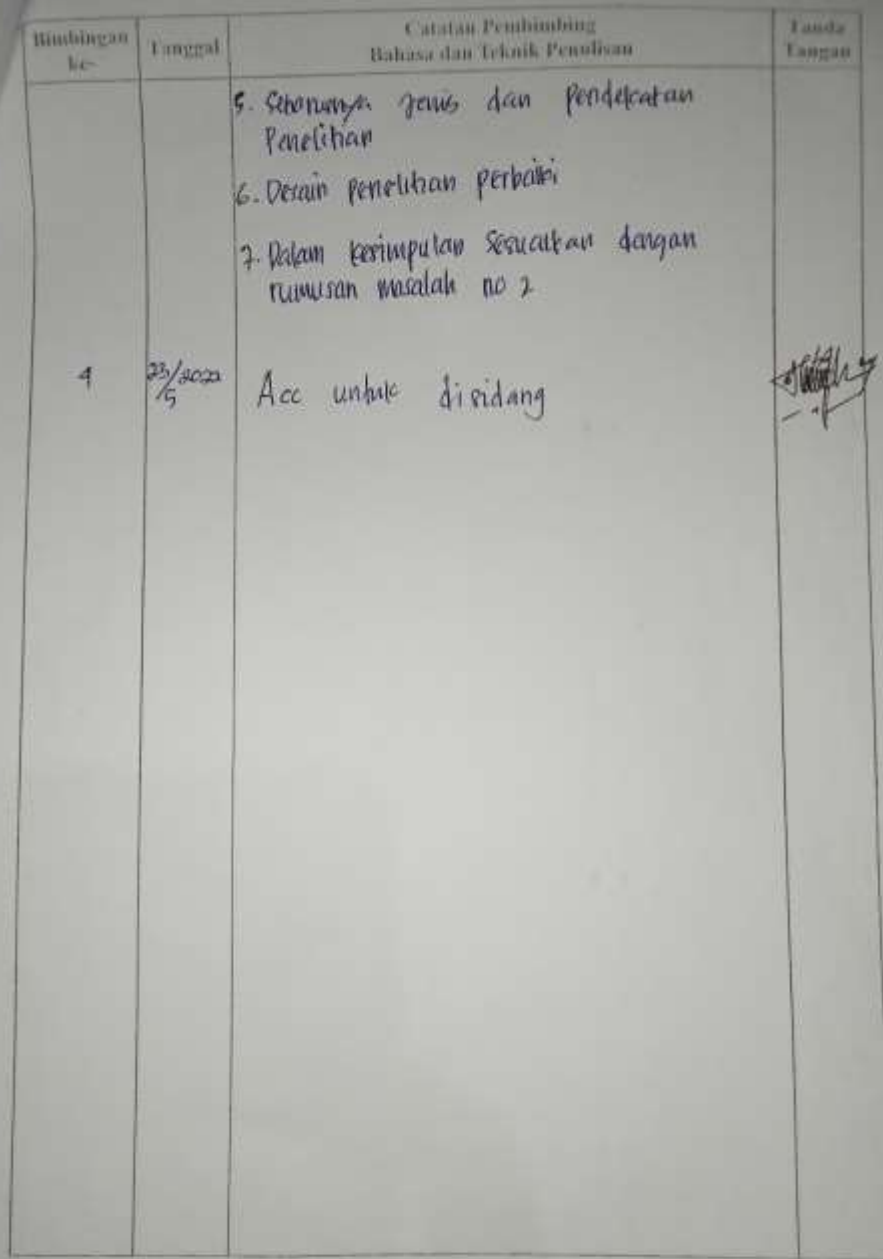 Bimbingan ke-
Tanggal
Catatan Pembimbing
Bahasa dan Teknik Penulisan
Tanda Tangan
5. Seharusnya Jenis dan Pendekatan
Penelitian
6. Desain penelitian perbaiki
7. Dalam kesimpulan sesuaikan dengan
rumusan masalah no 2
4
23/2022
5
Acc untuk disidang